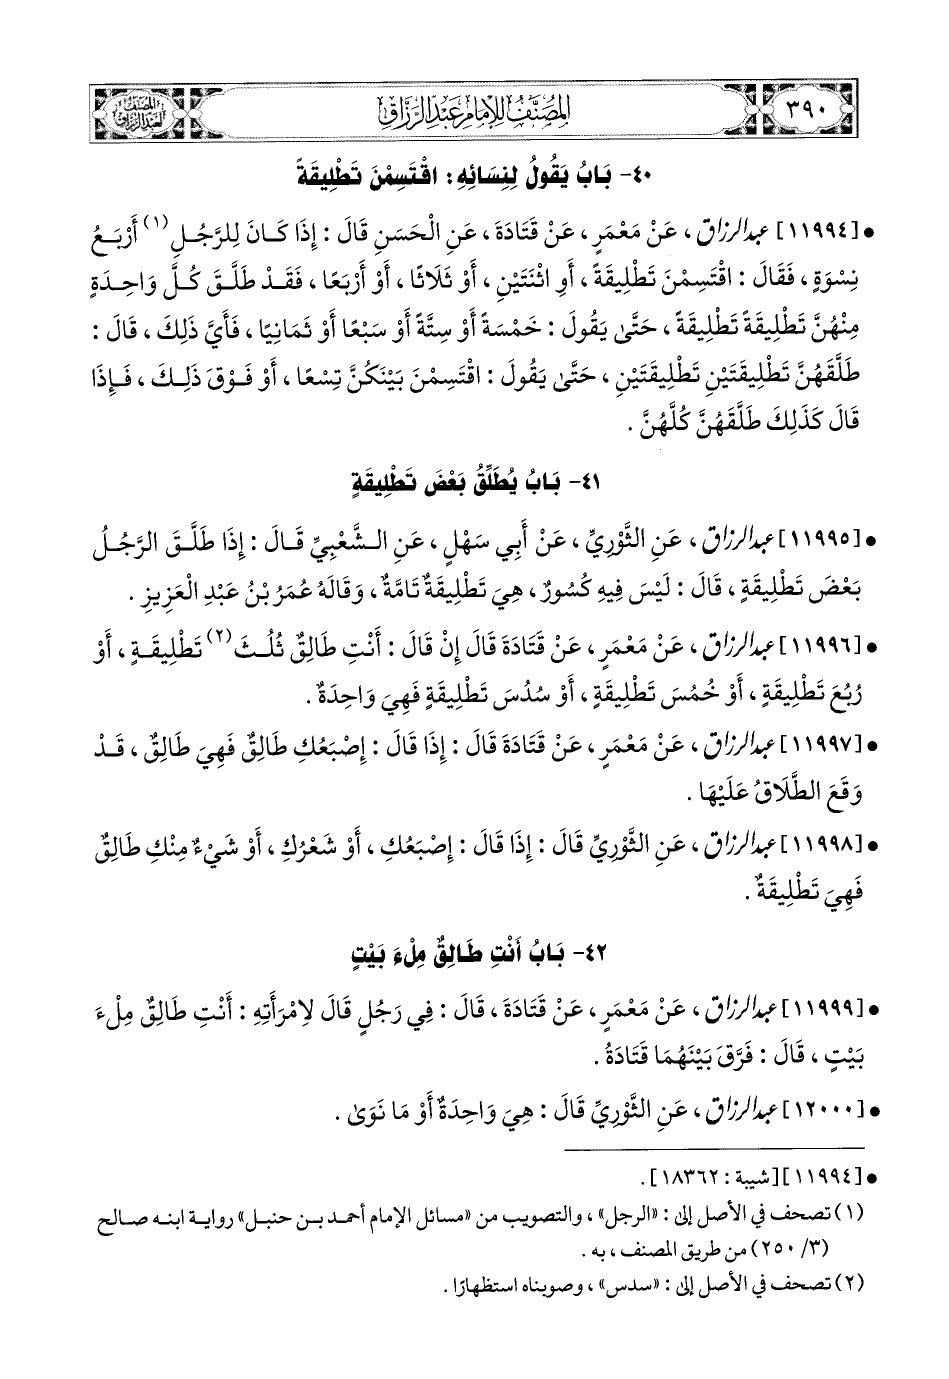 المصنف لعبد الرزاق
المُصَنَّفُ لِلإِمَامِ عَبْدِ الرَّزَّاقِ
٣٩٠
٤٠- بَابُ يَقُولُ لِنِسَائِهِ : اقْتَسِمْنَ تَطْلِيقَةً
• [١١٩٩٤] عبد الرزاق ، عَنْ مَعْمَرٍ ، عَنْ قَتَادَةَ ، عَنِ الْحَسَنِ قَالَ : إِذَا كَانَ لِلرَّجُلِ (١) أَرْبَعُ
نِسْوَةٍ ، فَقَالَ : اقْتَسِمْنَ تَطْلِيقَةً ، أَوِ اثْنَتَيْنِ ، أَوْ ثَلَاثًا ، أَوْ أَرْبَعًا ، فَقَدْ طَلَّقَ كُلَّ وَاحِدَةٍ
مِنْهُنَّ تَطْلِيقَةً تَطْلِيقَةً ، حَتَّى يَقُولَ : خَمْسَةً أَوْ سِتَّةً أَوْ سَبْعًا أَوْ ثَمَانِيًا ، فَأَيَّ ذَلِكَ ، قَالَ :
طَلَّقَهُنَّ تَطْلِيقَتَيْنِ تَطْلِيقَتَيْنِ ، حَتَّى يَقُولَ : اقْتَسِمْنَ بَيْنَكُنَّ تِسْعًا ، أَوْ فَوْقَ ذَلِكَ ، فَإِذَا
قَالَ كَذَلِكَ طَلَّقَهُنَّ كُلَّهُنَّ .
٤١- بَابُ يُطَلِّقُ بَعْضَ تَطْلِيقَةٍ
• [١١٩٩٥] عبد الرزاق ، عَنِ الثَّوْرِيِّ ، عَنْ أَبِي سَهْلٍ ، عَنِ الشَّعْبِيِّ قَالَ : إِذَا طَلَّقَ الرَّجُلُ
بَعْضَ تَطْلِيقَةٍ ، قَالَ : لَيْسَ فِيهِ كُسُورٌ ، هِيَ تَطْلِيقَةٌ تَامَّةٌ ، وَقَالَهُ عُمَرُ بْنُ عَبْدِ الْعَزِيزِ .
• [١١٩٩٦] عبد الرزاق ، عَنْ مَعْمَرٍ ، عَنْ قَتَادَةَ قَالَ إِنْ قَالَ : أَنْتِ طَالِقٌ ثُلُثَ (٢) تَطْلِيقَةٍ ، أَوْ
رُبُعَ تَطْلِيقَةٍ ، أَوْ خُمُسَ تَطْلِيقَةٍ ، أَوْ سُدُسَ تَطْلِيقَةٍ فَهِيَ وَاحِدَةٌ .
• [١١٩٩٧] عبد الرزاق ، عَنْ مَعْمَرٍ ، عَنْ قَتَادَةَ قَالَ : إِذَا قَالَ : إِصْبَعُكِ طَالِقٌ فَهِيَ طَالِقٌ ، قَدْ
وَقَعَ الطَّلَاقُ عَلَيْهَا .
• [١١٩٩٨] عبد الرزاق ، عَنِ الثَّوْرِيِّ قَالَ : إِذَا قَالَ : إِصْبَعُكِ ، أَوْ شَعْرُكِ ، أَوْ شَيْءٌ مِنْكِ طَالِقٌ
فَهِيَ تَطْلِيقَةٌ .
٤٢- بَابُ أَنْتِ طَالِقٌ مِلْءَ بَيْتٍ
• [١١٩٩٩] عبد الرزاق ، عَنْ مَعْمَرٍ ، عَنْ قَتَادَةَ ، قَالَ : فِي رَجُلٍ قَالَ لِامْرَأَتِهِ : أَنْتِ طَالِقٌ مِلْءَ
بَيْتٍ ، قَالَ : فَرَّقَ بَيْنَهُمَا قَتَادَةُ .
• [١٢٠٠٠] عبد الرزاق ، عَنِ الثَّوْرِيِّ قَالَ : هِيَ وَاحِدَةٌ أَوْ مَا نَوَى .
• [١١٩٩٤] [شيبة : ١٨٣٦٢] .
(١) تصحف في الأصل إلى : «الرجل» ، والتصويب من «مسائل الإمام أحمد بن حنبل» رواية ابنه صالح
(٣/ ٢٥٠) من طريق المصنف ، به .
(٢) تصحف في الأصل إلى : «سدس» ، وصوبناه استظهارًا .